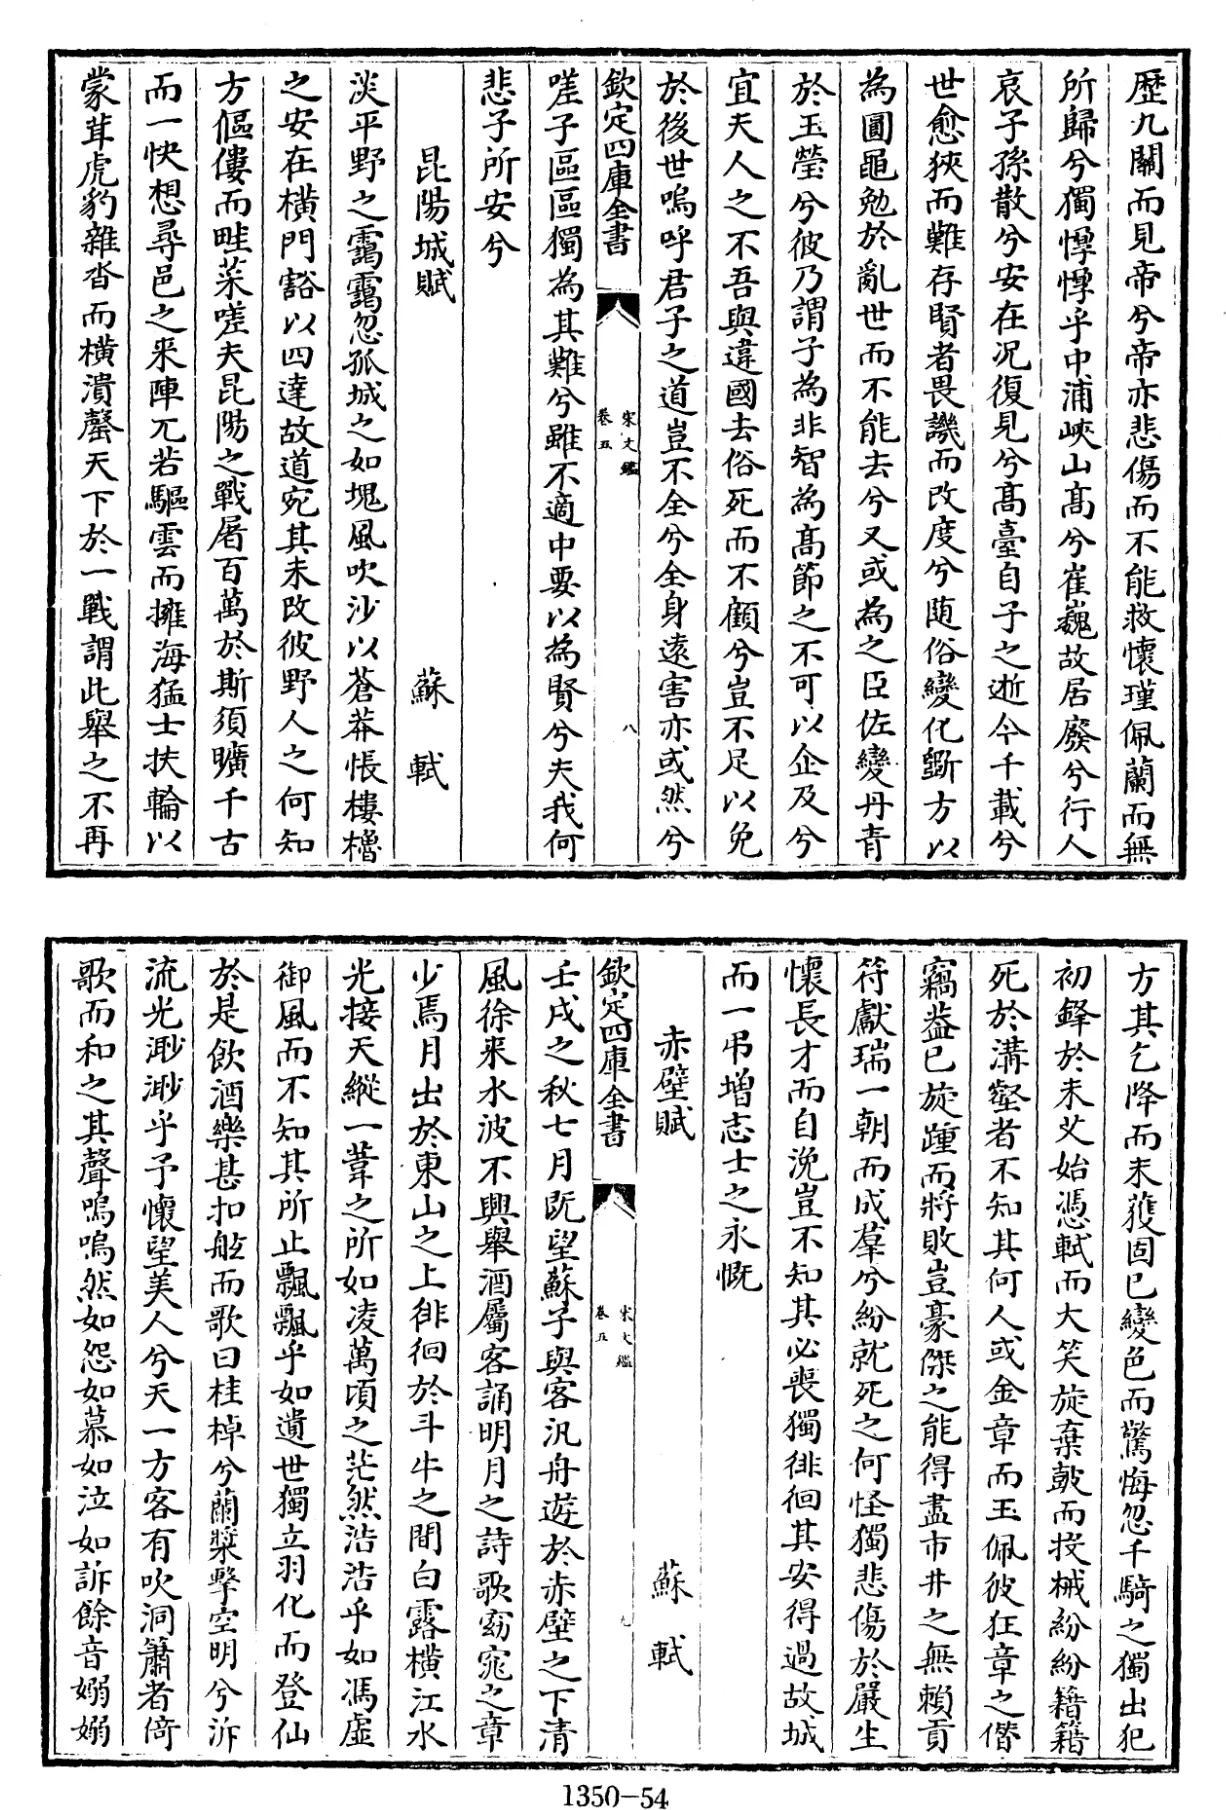 歴九關而見帝兮帝亦悲傷而不能救懷瑾佩蘭而無
所歸兮獨惸惸乎中浦峽山髙兮崔巍故居廢兮行人
哀子孫散兮安在況復見兮髙臺自子之逝今千載兮
世愈狹而難存賢者畏譏而改度兮随俗變化斵方以
為圓黽勉於亂世而不能去兮又或為之臣佐變丹青
於玉瑩兮彼乃謂子為非智為髙節之不可以企及兮
宜夫人之不吾與違國去俗死而不顧兮豈不足以免
於後世嗚呼君子之道豈不全兮全身逺害亦或然兮
欽定四庫全書
宋文鑑
卷五
八
嗟子區區獨為其難兮雖不適中要以為賢兮夫我何
悲子所安兮
昆陽城賦
蘇軾
淡平野之靄靄忽孤城之如塊風吹沙以蒼莽悵樓櫓
之安在横門豁以四達故道宛其未改彼野人之何知
方傴僂而畦菜嗟夫昆陽之戰屠百萬於斯須曠千古
而一快想尋邑之来陣兀若驅雲而擁海猛士扶輪以
蒙茸虎豹雜沓而横潰罄天下於一戰謂此舉之不再
方其乞降而未獲固已變色而驚悔忽千騎之獨出犯
初鋒於未艾始憑軾而大笑旋棄鼓而投械紛紛籍籍
死於溝壑者不知其何人或金章而玉佩彼狂童之僭
竊葢已旋踵而將敗豈豪傑之能得盡市井之無賴貢
符獻瑞一朝而成羣兮紛就死之何怪獨悲傷於嚴生
懷長才而自浼豈不知其必喪獨徘徊其安得過故城
而一弔增志士之永慨
赤壁賦
蘇軾
欽定四庫全書
宋文鑑
卷五
九
壬戌之秋七月既望蘇子與客汎舟遊於赤壁之下清
風徐来水波不興舉酒屬客誦明月之詩歌窈窕之章
少焉月出於東山之上徘徊於斗牛之間白露横江水
光接天縱一葦之所如凌萬頃之茫然浩浩乎如馮虚
御風而不知其所止飄飄乎如遺世獨立羽化而登仙
於是飲酒樂甚扣舷而歌曰桂棹兮蘭槳擊空明兮泝
流光渺渺乎予懷望美人兮天一方客有吹洞簫者倚
歌而和之其聲嗚嗚然如怨如慕如泣如訴餘音嫋嫋
1350-54